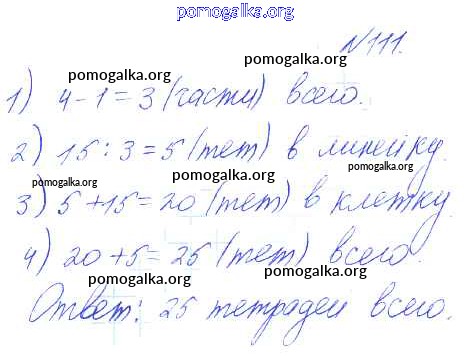 pomogalka.org
№111.
pomogalka.org
1) 4-1=3 (части) всего.
pomogalka.org
2) 15:3=5 (тет) в линейку.
pomogalka.org
pomogalka.org
3) 5+15=20 (тет) в клетку.
pomogalka.org
4) 20+5=25 (тет) всего.
pomogalka.org
Ответ: 25 тетрадей всего.